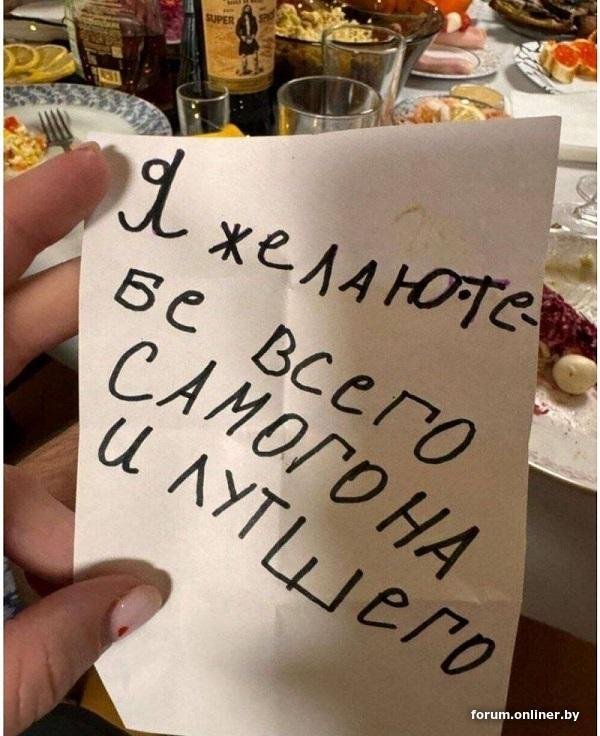 SUPER SPICED
Я желАЮ•Те-
бе всего
САМОГОНА
И ЛУТШего
forum.onliner.by